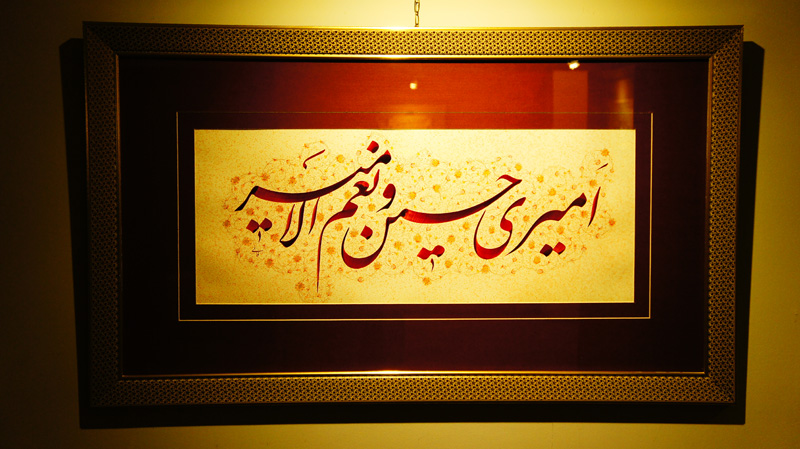 امیری حسین و نعم الامیر